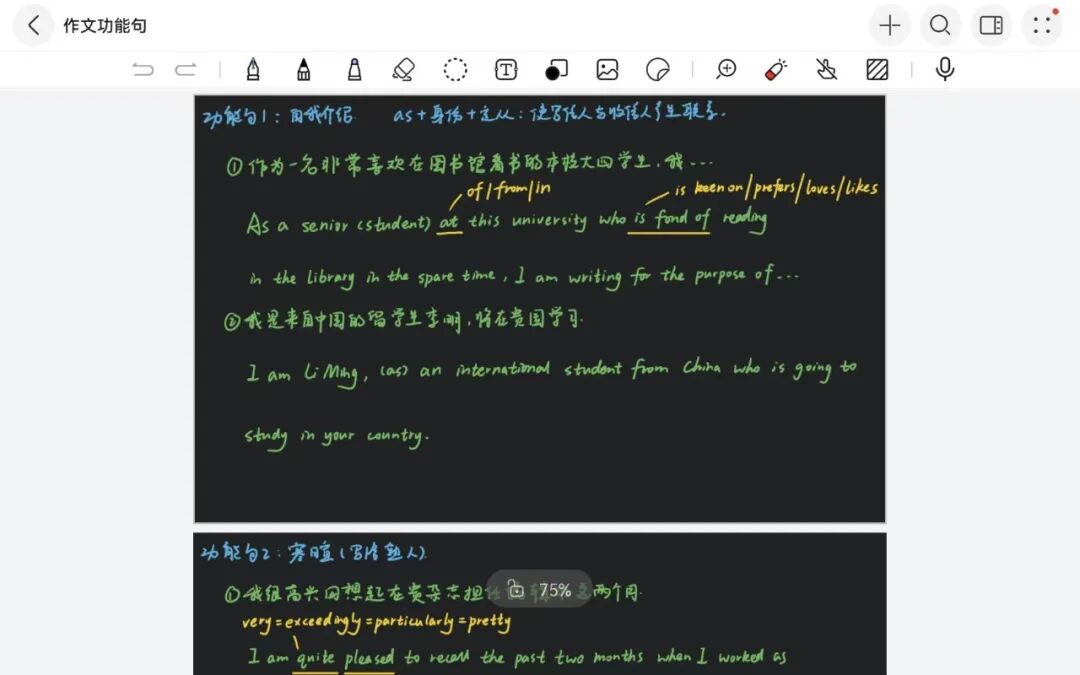 作文功能句
功能句1：自我介绍 as+身份+定从：使写信人与收信人产生联系.
①作为一名非常喜欢在图书馆看书的本校大四学生，我...
of/from/in is keen on/prefers/loves/likes
As a senior (student) at this university who is fond of reading
in the library in the spare time, I am writing for the purpose of...
②我是来自中国的留学生李明，将在贵国学习.
I am Li Ming, (as) an international student from China who is going to
study in your country.
功能句2：寒暄(写给熟人).
①我很高兴回想起在贵杂志担任 两个月.
75%
very=exceedingly=particularly=pretty
I am quite pleased to recall the past two months when I worked as